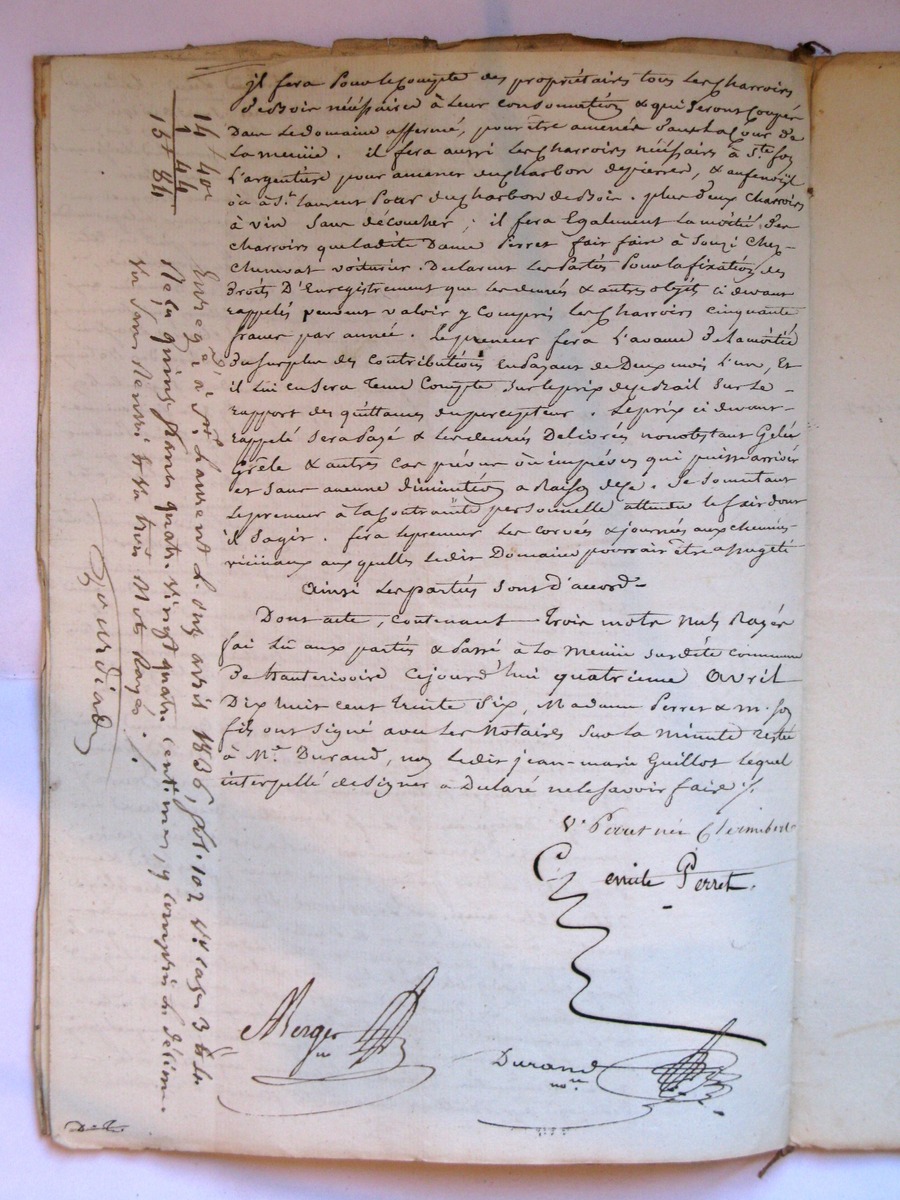 il fera Pour le Compte des propriétaires tous les Charrois
de Bois nécéssaires à leur consommation & qui Seront Coupés
Dans Le domaine affermé, pour être amenés dans La Cour de
La menüe. il fera aussi Les Charrois nécéssaires à Ste foy
L'argentiere pour amener du Charbon de pierres, &
ou à St. laurent Pour du Charbon de Bois. plus deux Charrois
à vin Sans découcher; il fera Egalement La moitié des
charrois que ladite Dame Perret fait faire à Chez
voiturier. Declarent Les Parties Pour la fixation des
Droits D'Enregistrement que les denrés & autres objets ci devant
rappellés peuvent valoir y Compris les Charrois cinquante
francs par année. Le preneur fera L'avance De la moitié
Du Surplus des contributions En Payant de Deux mois L'un, Et
il Lui en Sera Tenu Compte Sur le prix du Bail Sur Le
rapport des quittances du percepteur. Le prix ci devant
rappellé Sera Payé & Les denrés Delivrés nonobstant Gelée
Grêle & autres Cas prévus ou imprévus qui puissent arriver
et Sans aucune diminution a Raison de ce. Se Soumettant
Le preneur à la Contrainte personnelle attendu le fait dont
il S'agit. fera le preneur Les Corvés & journés aux chemins
vicinaux aux quelles ledit Domaine pourrait être assugéti
Ainsi Les parties Sont d'accord
Dont acte, Contenant Trois mots nuls Rayés
fai Lû aux parties & Passé à La menüe Susdite Commune
De hauterivoire Cejourd'hui quatrieme Avril
Dix huit cent trente Six, Madame Perret & m. Son
fils ont Signé avec Les Notaires Sur La minute restée
à Me. Durand, non Ledit jean-marie Guillot Lequel
interpellé de Signer a Declaré ne le Savoir faire ./.
Ve Perret née
Emile Perret.
Berger
nre
Durand
nore
14 f 40c
1 44
15 f 84
Enregré à St. Laurent L'onze avril 1836, fol. 102 Vo cases 3 &
Reçu quinze francs quatre vingt quatre centimes, y compris le décime
Vu Sans Renvoi & Trois Mots Rayés ./.
Gourdiad